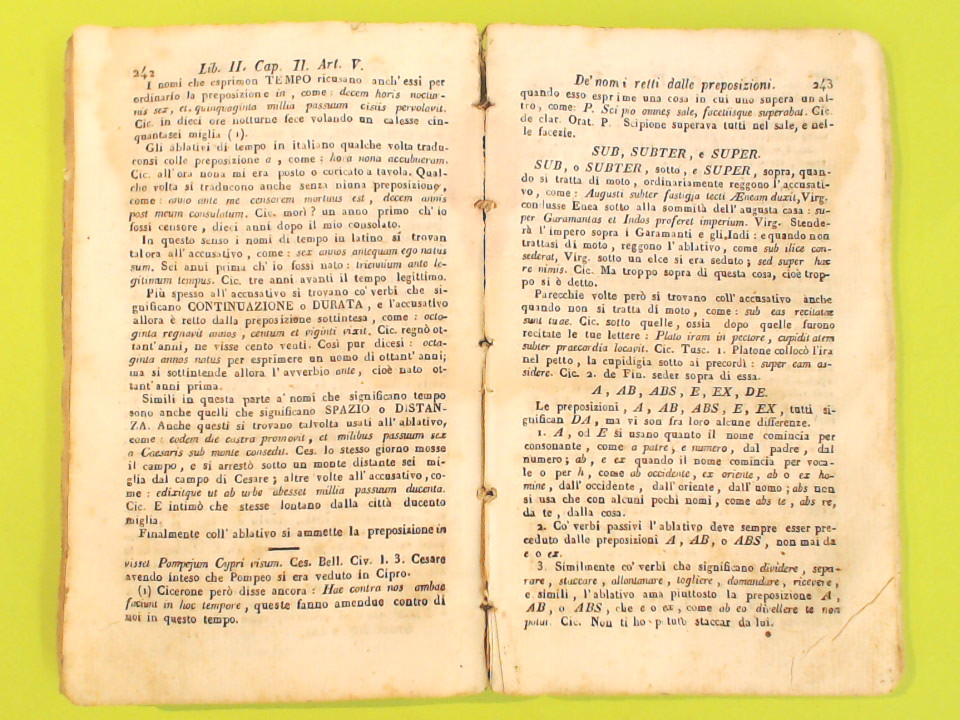 242
Lib. II. Cap. II. Art. V.
I nomi che esprimon TEMPO ricusano anch'essi per
ordinario la preposizione in, come: decem horis noctur-
nis sex, et quinquaginta millia passuum cisiis pervolavit.
Cic. in dieci ore notturne fece volando un calesse cin-
quantasei miglia (1).
Gli ablativi di tempo in italiano qualche volta tradu-
consi colle preposizione a, come: hora nona accubueram.
Cic. all'ora nona mi era posto o coricato a tavola. Qual-
che volta si traducono anche senza niuna preposizione,
come: anno ante me censorem mortuus est, decem annis
post meum consulatum. Cic. morì? un anno primo ch'io
fossi censore, dieci anni dopo il mio consolato.
In questo senso i nomi di tempo in latino si trovan
talora all'accusativo, come: sex annos antequam ego natus
sum. Sei anni prima ch'io fossi nato: triennium ante le-
gitimum tempus. Cic. tre anni avanti il tempo legittimo.
Più spesso all'accusativo si trovano co' verbi che si-
gnificano CONTINUAZIONE o DURATA, e l'accusativo
allora è retto dalla preposizione sottintesa, come: octo-
ginta regnavit annos, centum et viginti vixit. Cic. regnò ot-
tant'anni, ne visse cento venti. Così pur dicesi: octa-
ginta annos natus per esprimere un uomo di ottant'anni;
ma si sottintende allora l'avverbio ante, cioè nato ot-
tant'anni prima.
Simili in questa parte a' nomi che significano tempo
sono anche quelli che significano SPAZIO o DISTAN-
ZA. Anche questi si trovano talvolta usati all'ablativo,
come: eodem die castra promovit, et milibus passuum sex
a Caesaris sub monte consedit. Ces. lo stesso giorno mosse
il campo, e si arrestò sotto un monte distante sei mi-
glia dal campo di Cesare; altre volte all'accusativo, co-
me: edixitque ut ab urbe abesset millia passuum ducenta.
Cic. E intimò che stesse lontano dalla città ducento
miglia.
Finalmente coll'ablativo si ammette la preposizione in
visset Pompejum Cypri visum. Ces. Bell. Civ. l. 3. Cesare
avendo inteso che Pompeo si era veduto in Cipro.
(1) Cicerone però disse ancora: Hae contra nos ambae
faciunt in hoc tempore, queste fanno amendue contro di
noi in questo tempo.
De' nomi retti dalle preposizioni.
243
quando esso esprime una cosa in cui uno supera un al-
tro, come: P. Scipio omnes sale, facetiisque superabat. Cic.
de clar. Orat. P. Scipione superava tutti nel sale, e nel-
le facezie.
SUB, SUBTER, e SUPER.
SUB, o SUBTER, sotto, e SUPER, sopra, quan-
do si tratta di moto, ordinariamente reggono l'accusati-
vo, come: Augusti subter fastigia tecti Æneam duxit, Virg.
condusse Enea sotto alla sommità dell'augusta casa: su-
per Garamantas et Indos proferet imperium. Virg. Stende-
rà l'impero sopra i Garamanti e gli Indi: e quando non
trattasi di moto, reggono l'ablativo, come sub ilice con-
sederat, Virg. sotto un elce si era seduto; sed super hac
re nimis. Cic. Ma troppo sopra di questa cosa, cioè trop-
po si è detto.
Parecchie volte però si trovano coll'accusativo anche
quando non si tratta di moto, come: sub eas recitatæ
sunt tuae. Cic. sotto quelle, ossia dopo quelle furono
recitate le tue lettere: Plato iram in pectore, cupiditatem
subter praecordia locavit. Cic. Tusc. 1. Platone collocò l'ira
nel petto, la cupidigia sotto ai precordi: super eam as-
sidere. Cic. 2. de Fin. seder sopra di essa.
A, AB, ABS, E, EX, DE.
Le preposizioni, A, AB, ABS, E, EX, tutti si-
gnifican DA, ma vi son fra loro alcune differenze.
1. A, od E si usano quanto il nome comincia per
consonante, come a patre, e numero, dal padre, dal
numero; ab, e ex quando il nome comincia per voca-
le o per h, come ab occidente, ex oriente, ab o ex ho-
mine, dall'occidente, dall'oriente, dall'uomo; abs non
si usa che con alcuni pochi nomi, come abs te, abs re,
da te, dalla cosa.
2. Co' verbi passivi l'ablativo deve sempre esser pre-
ceduto dalle preposizioni A, AB, o ABS, non mai da
e o ex.
3. Similmente co' verbi che significano dividere, sepa-
rare, staccare, allontanare, togliere, domandare, ricevere,
e simili, l'ablativo ama piuttosto la preposizione A,
AB, o ABS, che e o ex, come ab eo divellere te non
potui. Cic. Non ti ho potuto staccar da lui.